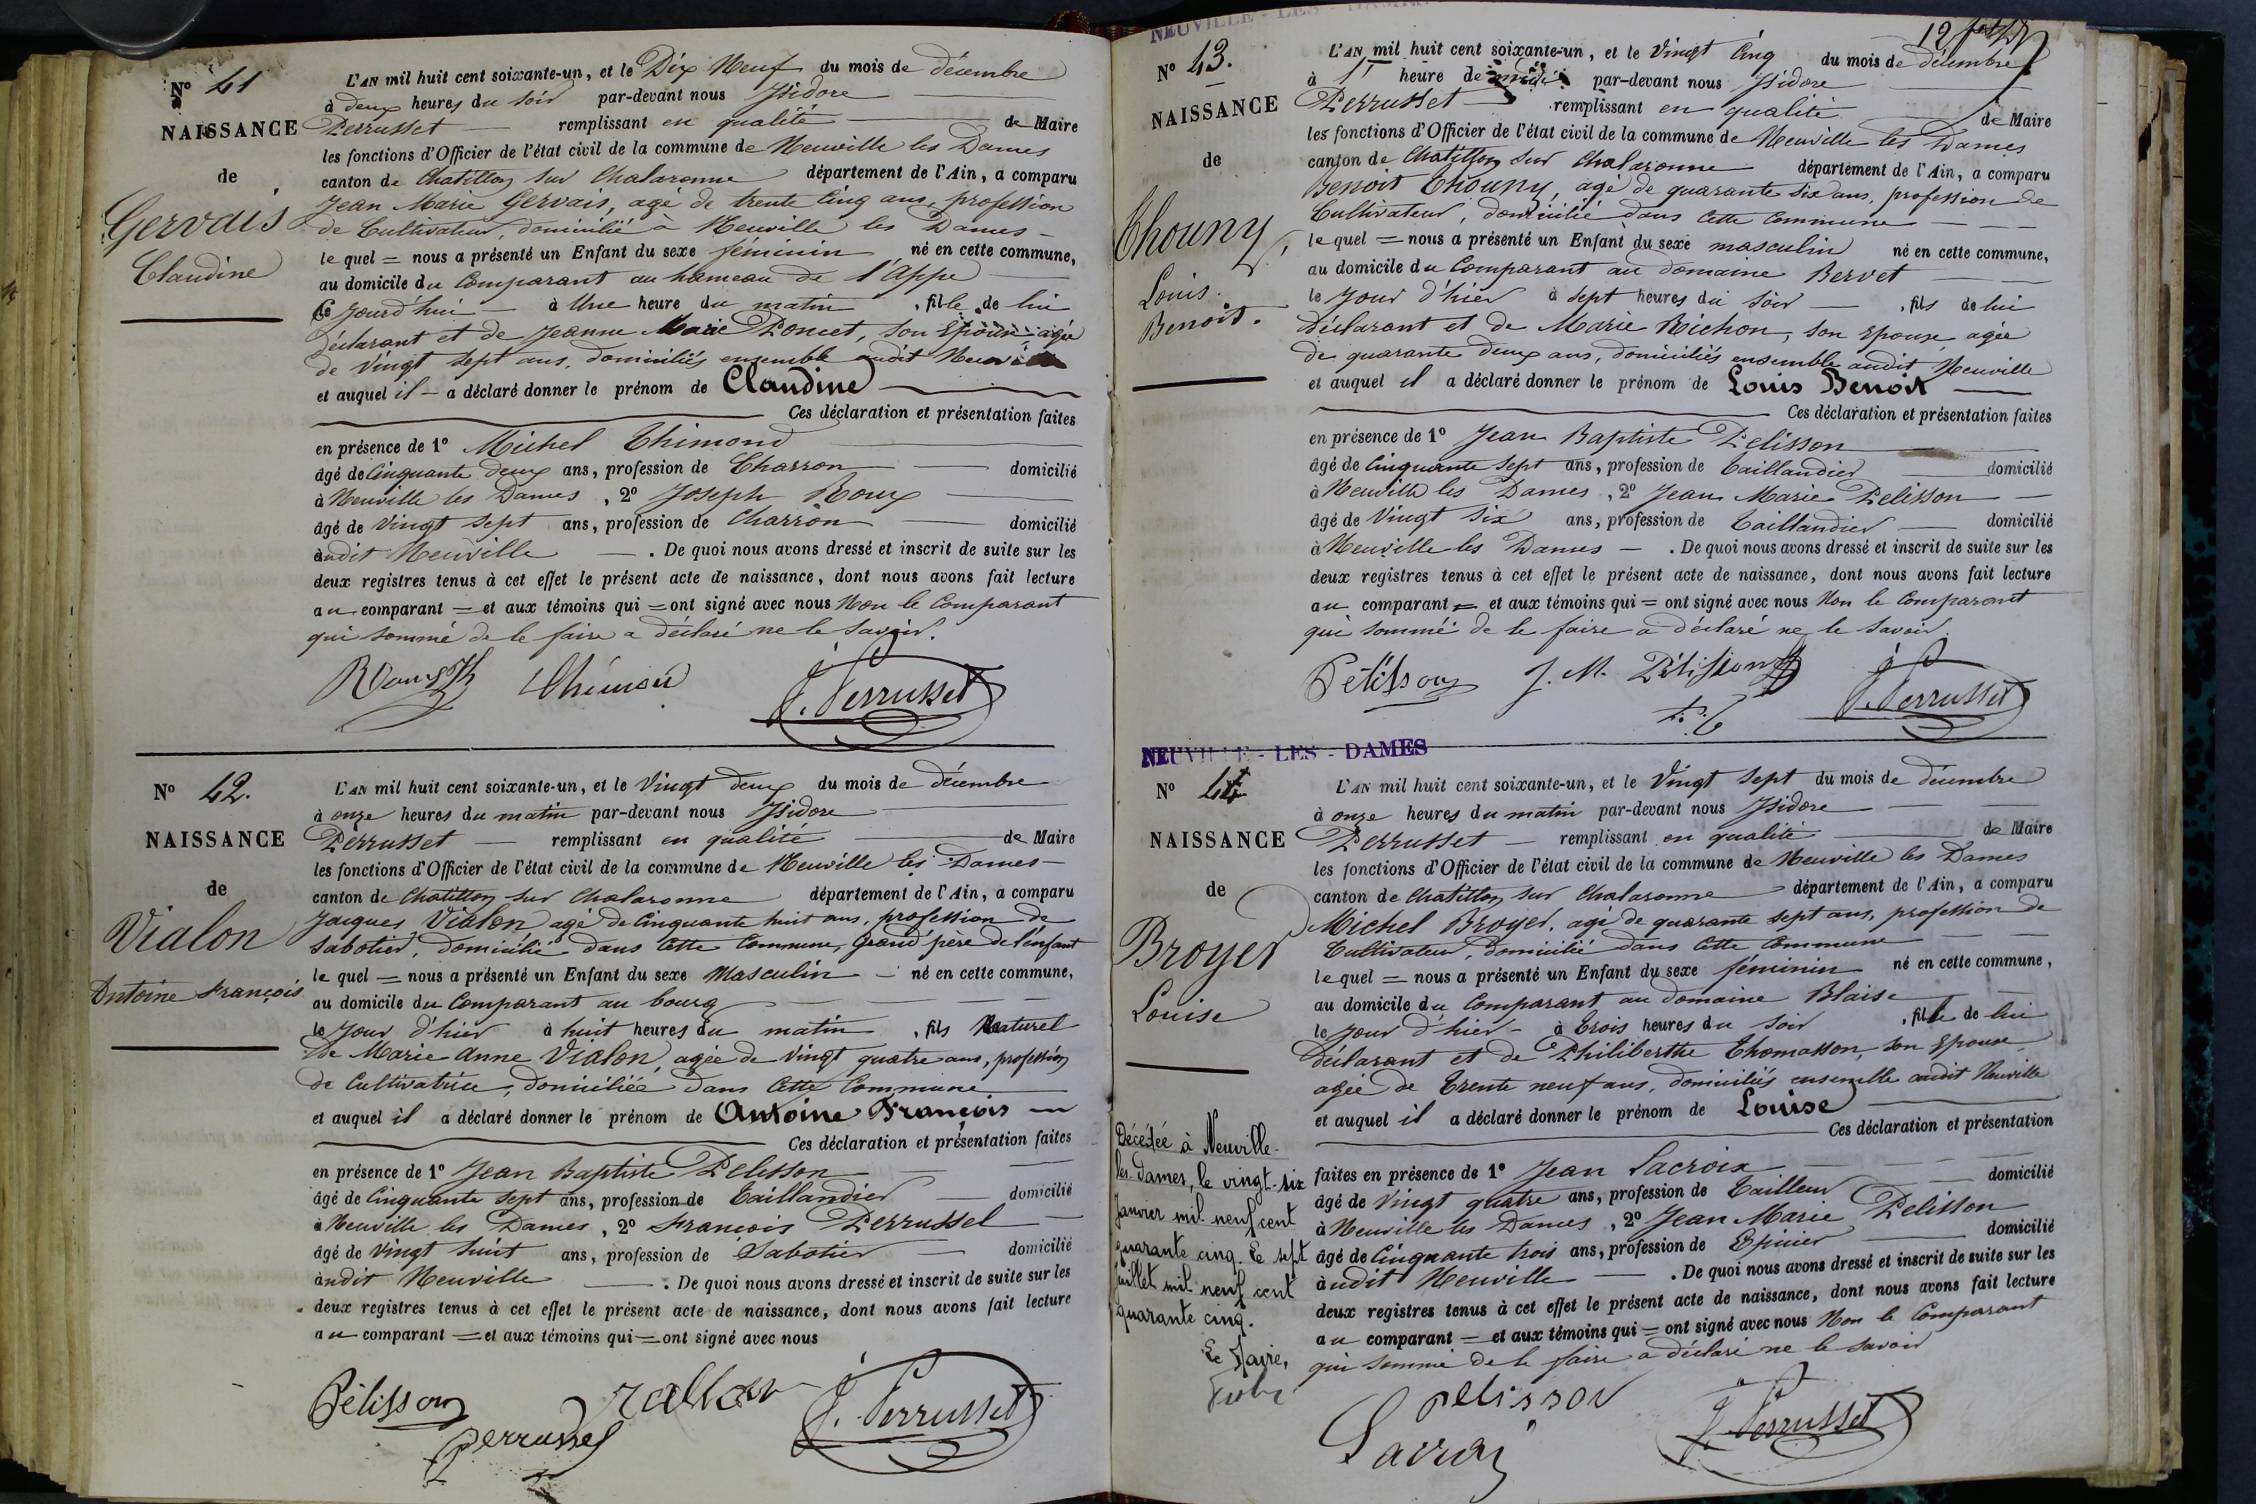 N° 41
NAISSANCE
de
Gervais
Claudine
L'AN mil huit cent soixante-un, et le Dix Neuf du mois de décembre
à deux heures du soir par-devant nous Isidore
Perrusset remplissant en qualité de Maire
les fonctions d'Officier de l'état civil de la commune de Neuville les Dames
canton de Chatillon sur Chalaronne département de l'Ain, a comparu
Jean Marie Gervais, agé de trente Cinq ans, profession
de Cultivateur, domicilié à Neuville les Dames
le quel = nous a présenté un Enfant du sexe féminin né en cette commune,
au domicile du Comparant au hameau de l'Appe
Ce Jourd'hui à Une heure du matin, fille de lui
déclarant et de Jeanne Marie Poncet, son Epouse agée
de Vingt sept ans, domiciliés ensemble audit Neuville
et auquel il a déclaré donner le prénom de Claudine
Ces déclaration et présentation faites
en présence de 1° Michel Thimond
âgé de Cinquante deux ans, profession de Charron domicilié
à Neuville les Dames, 2° Joseph Roux
âgé de Vingt sept ans, profession de Charron domicilié
audit Neuville. De quoi nous avons dressé et inscrit de suite sur les
deux registres tenus à cet effet le présent acte de naissance, dont nous avons fait lecture
au comparant = et aux témoins qui = ont signé avec nous Non le Comparant
qui sommé de le faire a déclaré ne le Savoir.
Thimon J. Perrusset
N° 42.
NAISSANCE
de
Vialon
Antoine François
L'AN mil huit cent soixante-un, et le Vingt deux du mois de décembre
à onze heures du matin par-devant nous Isidore
Perrusset remplissant en qualité de Maire
les fonctions d'Officier de l'état civil de la commune de Neuville les Dames
canton de Chatillon sur Chalaronne département de l'Ain, a comparu
Jacques Vialon agé de Cinquante huit ans, profession de
Sabotier, domicilié dans Cette Commune, Grand'père de l'énfant
le quel = nous a présenté un Enfant du sexe Masculin né en cette commune,
au domicile du Comparant au bourg
le Jour d'hier à huit heures du matin, fils Naturel
de Marie Anne Vialon, agée de Vingt quatre ans, profession
de Cultivatrice, domiciliée dans Cette Commune
et auquel il a déclaré donner le prénom de Antoine François
Ces déclaration et présentation faites
en présence de 1° Jean Baptiste Pelisson
âgé de Cinquante sept ans, profession de Taillandier domicilié
à Neuville les Dames, 2° François Perrussel
âgé de Vingt huit ans, profession de Sabotier domicilié
audit Neuville. De quoi nous avons dressé et inscrit de suite sur les
deux registres tenus à cet effet le présent acte de naissance, dont nous avons fait lecture
au comparant = et aux témoins qui = ont signé avec nous
Pélisson Perrussel J. Perrusset
NEUVILLE - LES - DAMES
12
N° 43.
NAISSANCE
de
Thouny
Louis
Benoit.
L'AN mil huit cent soixante-un, et le Vingt Cinq du mois de décembre
à 1 heure de midi par-devant nous Isidore
Perrusset remplissant en qualité de Maire
les fonctions d'Officier de l'état civil de la commune de Neuville les Dames
canton de Chatillon sur Chalaronne département de l'Ain, a comparu
Benoit Thouny, agé de quarante Six ans, profession de
Cultivateur, domicilié dans Cette Commune
le quel = nous a présenté un Enfant du sexe masculin né en cette commune,
au domicile du Comparant au domaine Bervet
le Jour d'hier à sept heures du Soir, fils de lui
déclarant et de Marie Richon, son Epouse, agée
de quarante deux ans, domiciliés ensemble audit Neuville
et auquel il a déclaré donner le prénom de Louis Benoit
Ces déclaration et présentation faites
en présence de 1° Jean Baptiste Pelisson
âgé de Cinquante sept ans, profession de Taillandier domicilié
à Neuville les Dames, 2° Jean Marie Pelisson
âgé de Vingt Six ans, profession de Taillandier domicilié
à Neuville les Dames. De quoi nous avons dressé et inscrit de suite sur les
deux registres tenus à cet effet le présent acte de naissance, dont nous avons fait lecture
au comparant = et aux témoins qui = ont signé avec nous Non le Comparant
qui sommé de le faire a déclaré ne le Savoir.
Pélisson J. M. Pélisson J. Perrusset
NEUVILLE - LES - DAMES
N° 44
NAISSANCE
de
Broyer
Louise
Décédée à Neuville-
les-Dames, le vingt-six
Janvier mil neuf cent
quarante cinq. Le sept
Juillet mil neuf cent
quarante cinq.
Le Maire,
L'AN mil huit cent soixante-un, et le Vingt Sept du mois de décembre
à onze heures du matin par-devant nous Isidore
Perrusset remplissant en qualité de Maire
les fonctions d'Officier de l'état civil de la commune de Neuville les Dames
canton de Chatillon sur Chalaronne département de l'Ain, a comparu
Michel Broyer, agé de quarante sept ans, profession de
Cultivateur, domicilié dans Cette Commune
le quel = nous a présenté un Enfant du sexe féminin né en cette commune,
au domicile du Comparant au domaine Blaise
le Jour d'hier à Trois heures du Soir, fille de lui
déclarant et de Philiberthe Thomasson, son Epouse
agée de Trente neuf ans, domiciliés ensemble audit Neuville
et auquel il a déclaré donner le prénom de Louise
Ces déclaration et présentation
faites en présence de 1° Jean Lacroix domicilié
âgé de Vingt quatre ans, profession de Tailleur
à Neuville les Dames, 2° Jean Marie Pelisson
âgé de Cinquante trois ans, profession de Epicier domicilié
audit Neuville. De quoi nous avons dressé et inscrit de suite sur les
deux registres tenus à cet effet le présent acte de naissance, dont nous avons fait lecture
au comparant = et aux témoins qui = ont signé avec nous Non le Comparant
qui sommé de le faire a déclaré ne le savoir
pelisson
Lacroix J. Perrusset